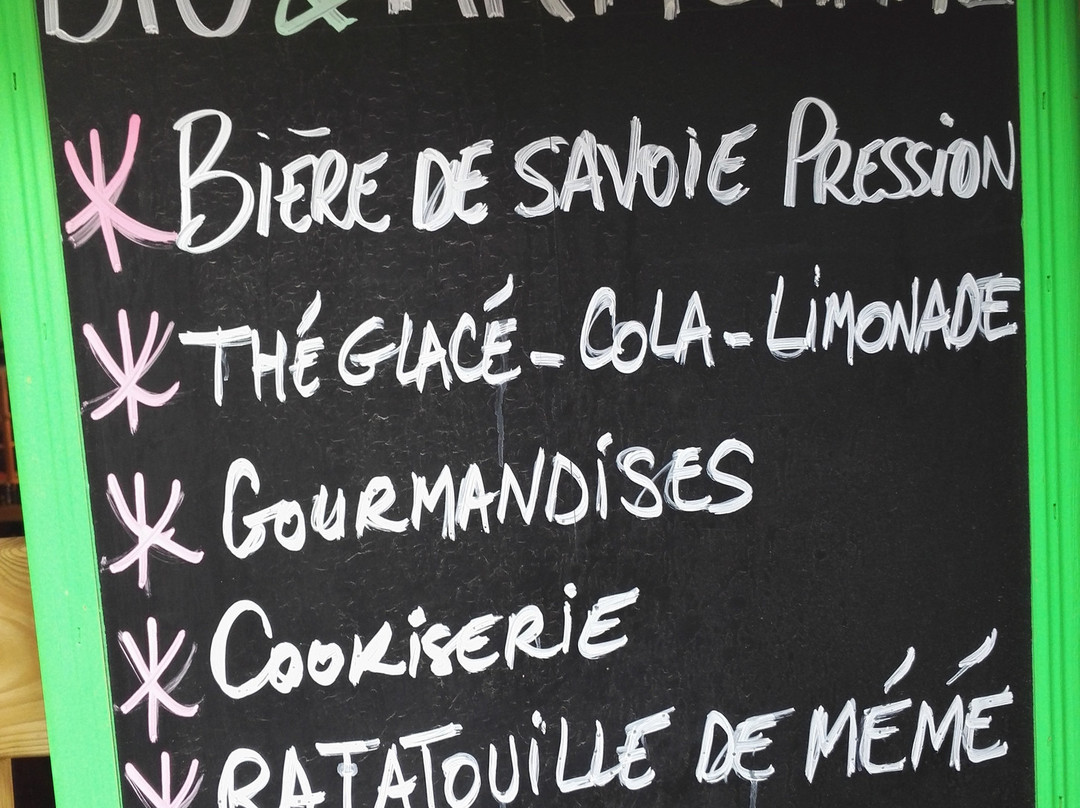 BIO & ARTISANAL
* BIÈRE DE SAVOIE PRESSION
* THÉ GLACÉ - COLA - LIMONADE
* GOURMANDISES
* COOKISERIE
* RATATOUILLE DE MÉMÉ